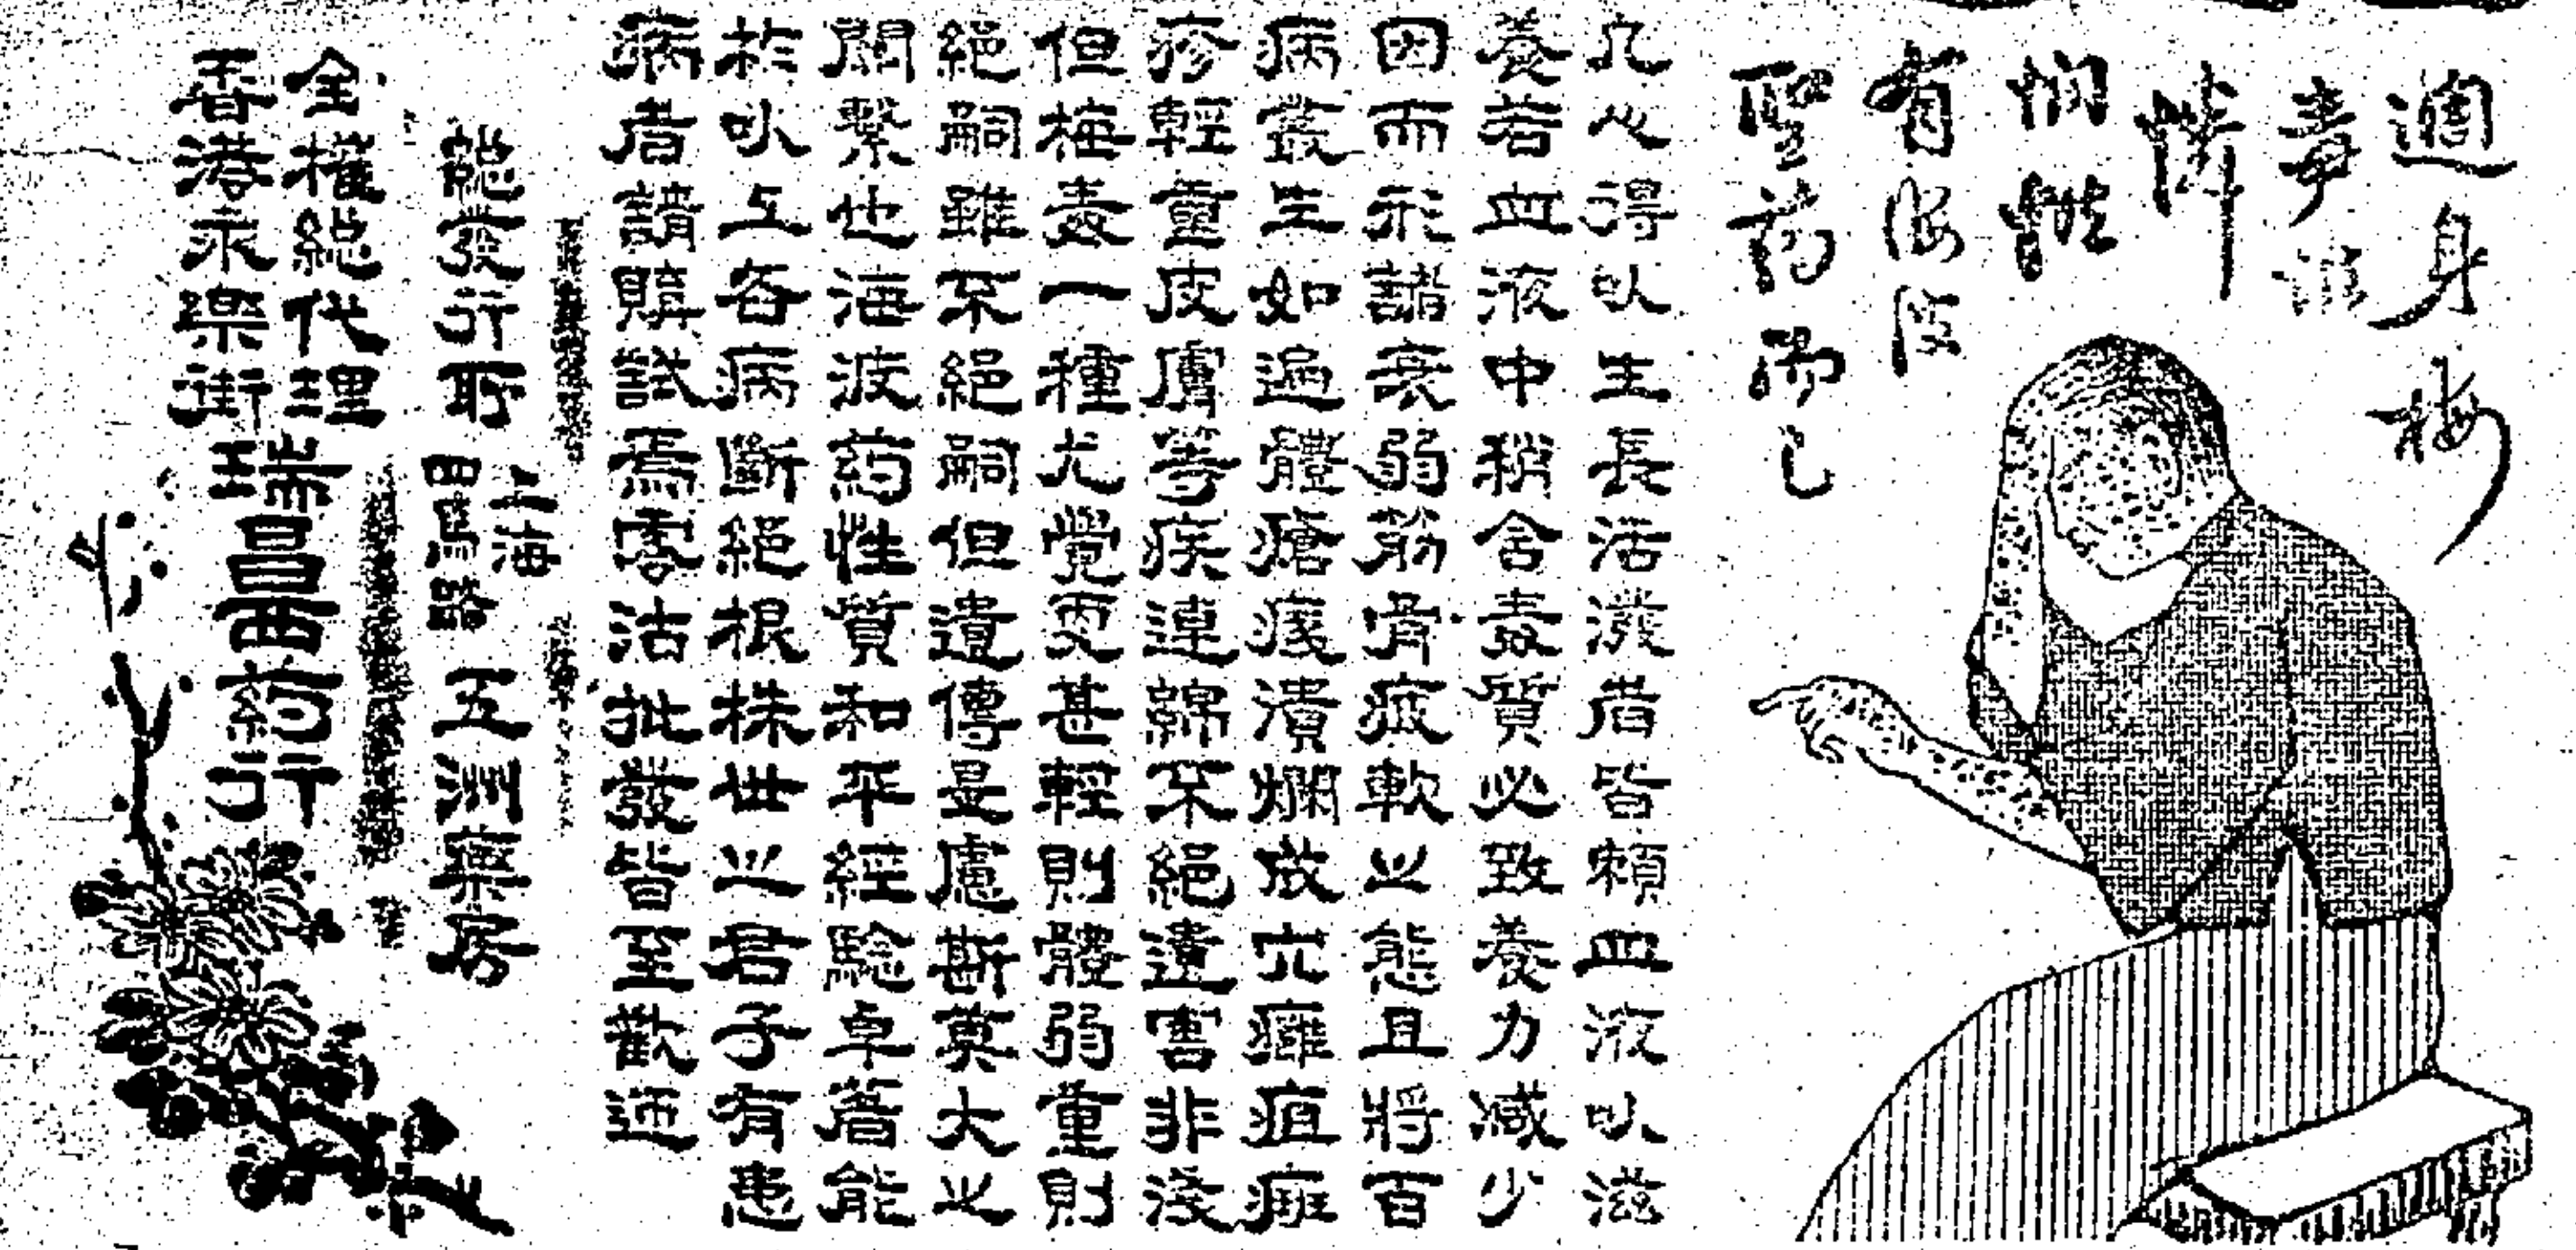 週身梅
毒誰
憐
憫
有海波
聖葯而已
凡人得以生長活潑者皆賴血液以滋
養若血液中稍含毒質必致養力減少
因而形諸衰弱筋骨痠軟之態且將百
病叢生如遍體瘡痍潰爛成穴癰疽痲
疹輕重皮膚等疾連綿不絕遺害非淺
但梅毒一種尤覺更甚輕則體弱重則
絕嗣雖不絕嗣但遺傳是慮斯莫大之
關繫也海波葯性質和平經驗卓著能
於以上各病斷絕根株世之君子有患
病者請購試焉零沽批發皆至歡迎
總發行所
上海
四馬路
五洲藥房
全權總代理
香港永樂街
瑞昌西葯行